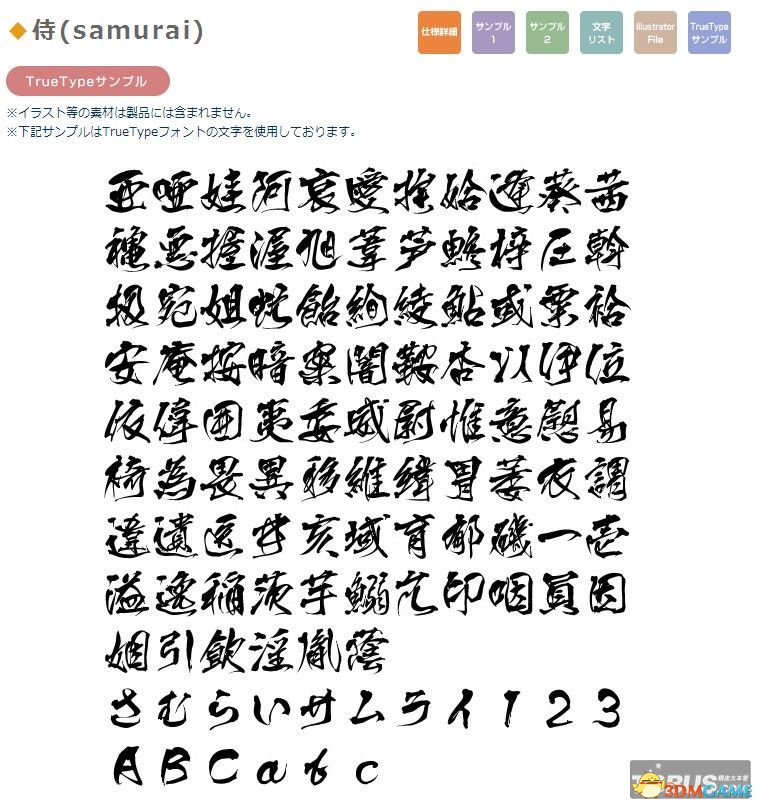 ◆侍(samurai)
仕様詳細 サンプル1 サンプル2 文字リスト Illustrator File TrueTypeサンプル
TrueTypeサンプル
※イラスト等の素材は製品には含まれません。
※下記サンプルはTrueTypeフォントの文字を使用しております。
亜唖娃阿哀愛挨姶逢葵茜
穐悪握渥旭葦芦鯵梓圧斡
扱宛姐虻飴絢綾鮎或粟袷
安庵按暗案闇鞍杏以伊位
依偉囲夷委威尉惟意慰易
椅為畏異移維緯胃萎衣謂
違遺医井亥域育郁磯一壱
溢逸稲茨芋鰯允印咽員因
姻引飲淫胤蔭
さむらいサムライ123
ABCabc
3DMGAME